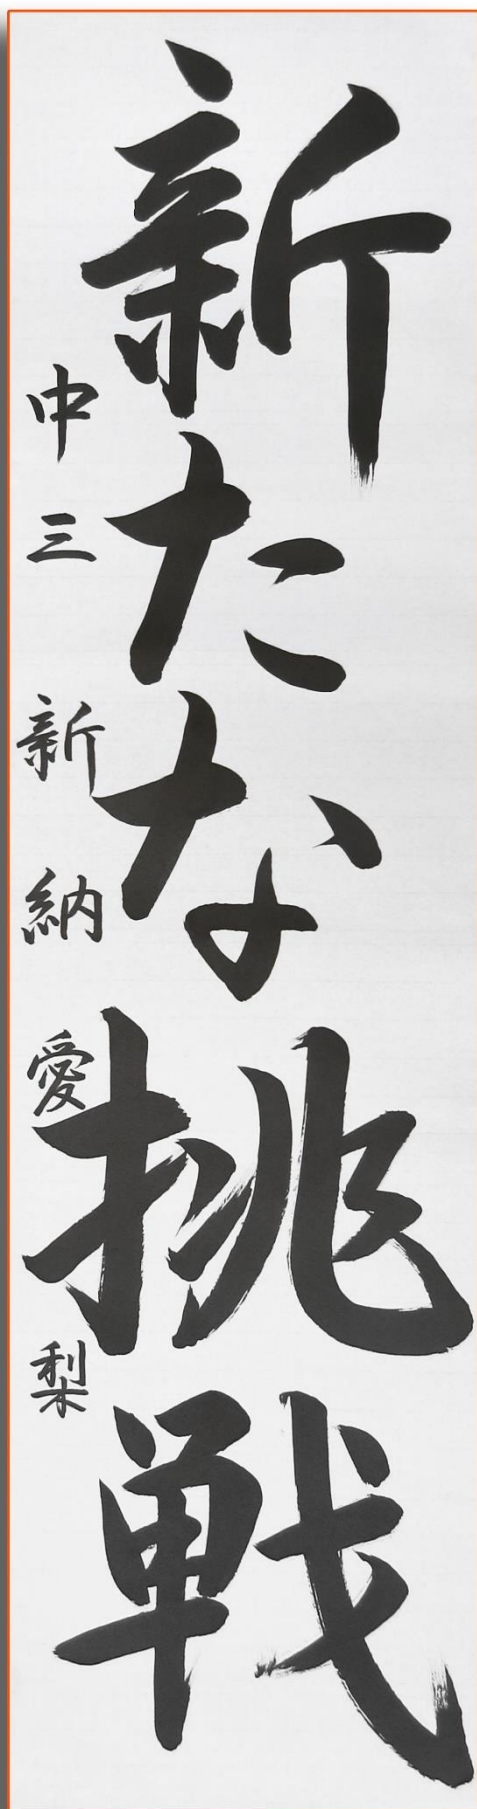 新たな挑戦
中三 新納 愛梨